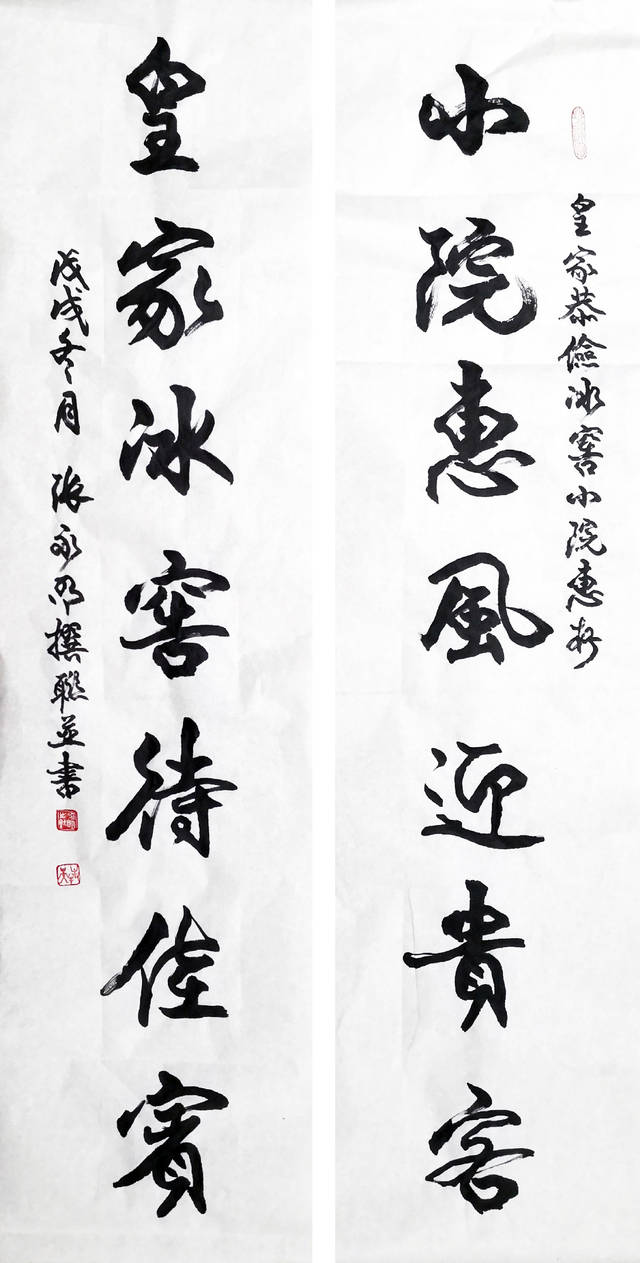 皇家恭儉冰窖小院惠存
小院惠風迎貴客
皇家冰窖待佳賓
戊戌冬月 張永明撰聯並書